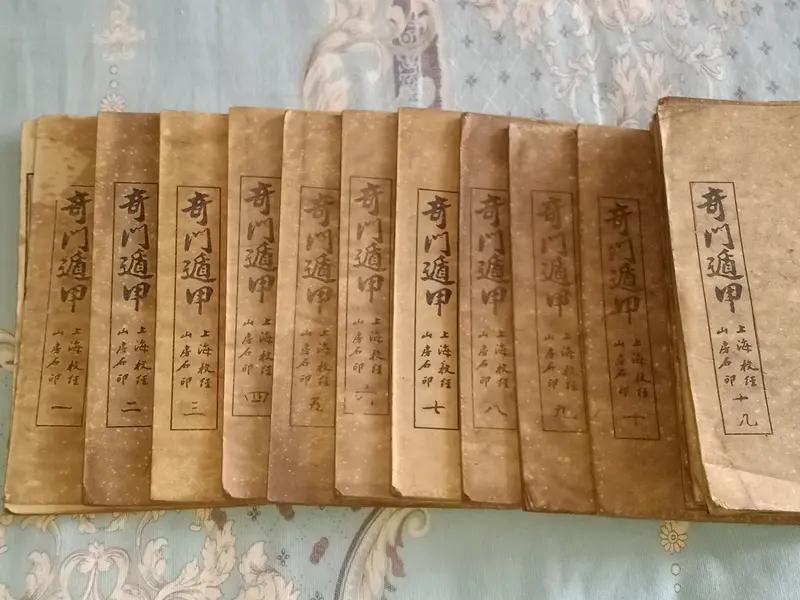 奇門遁甲
上海校經
山房石印
一
奇門遁甲
上海校經
山房石印
二
奇門遁甲
上海校經
山房石印
三
奇門遁甲
上海校經
山房石印
四
奇門遁甲
上海校經
山房石印
五
奇門遁甲
上海校經
山房石印
六
奇門遁甲
上海校經
山房石印
七
奇門遁甲
上海校經
山房石印
八
奇門遁甲
上海校經
山房石印
九
奇門遁甲
上海校經
山房石印
十
奇門遁甲
上海校經
山房石印
十九